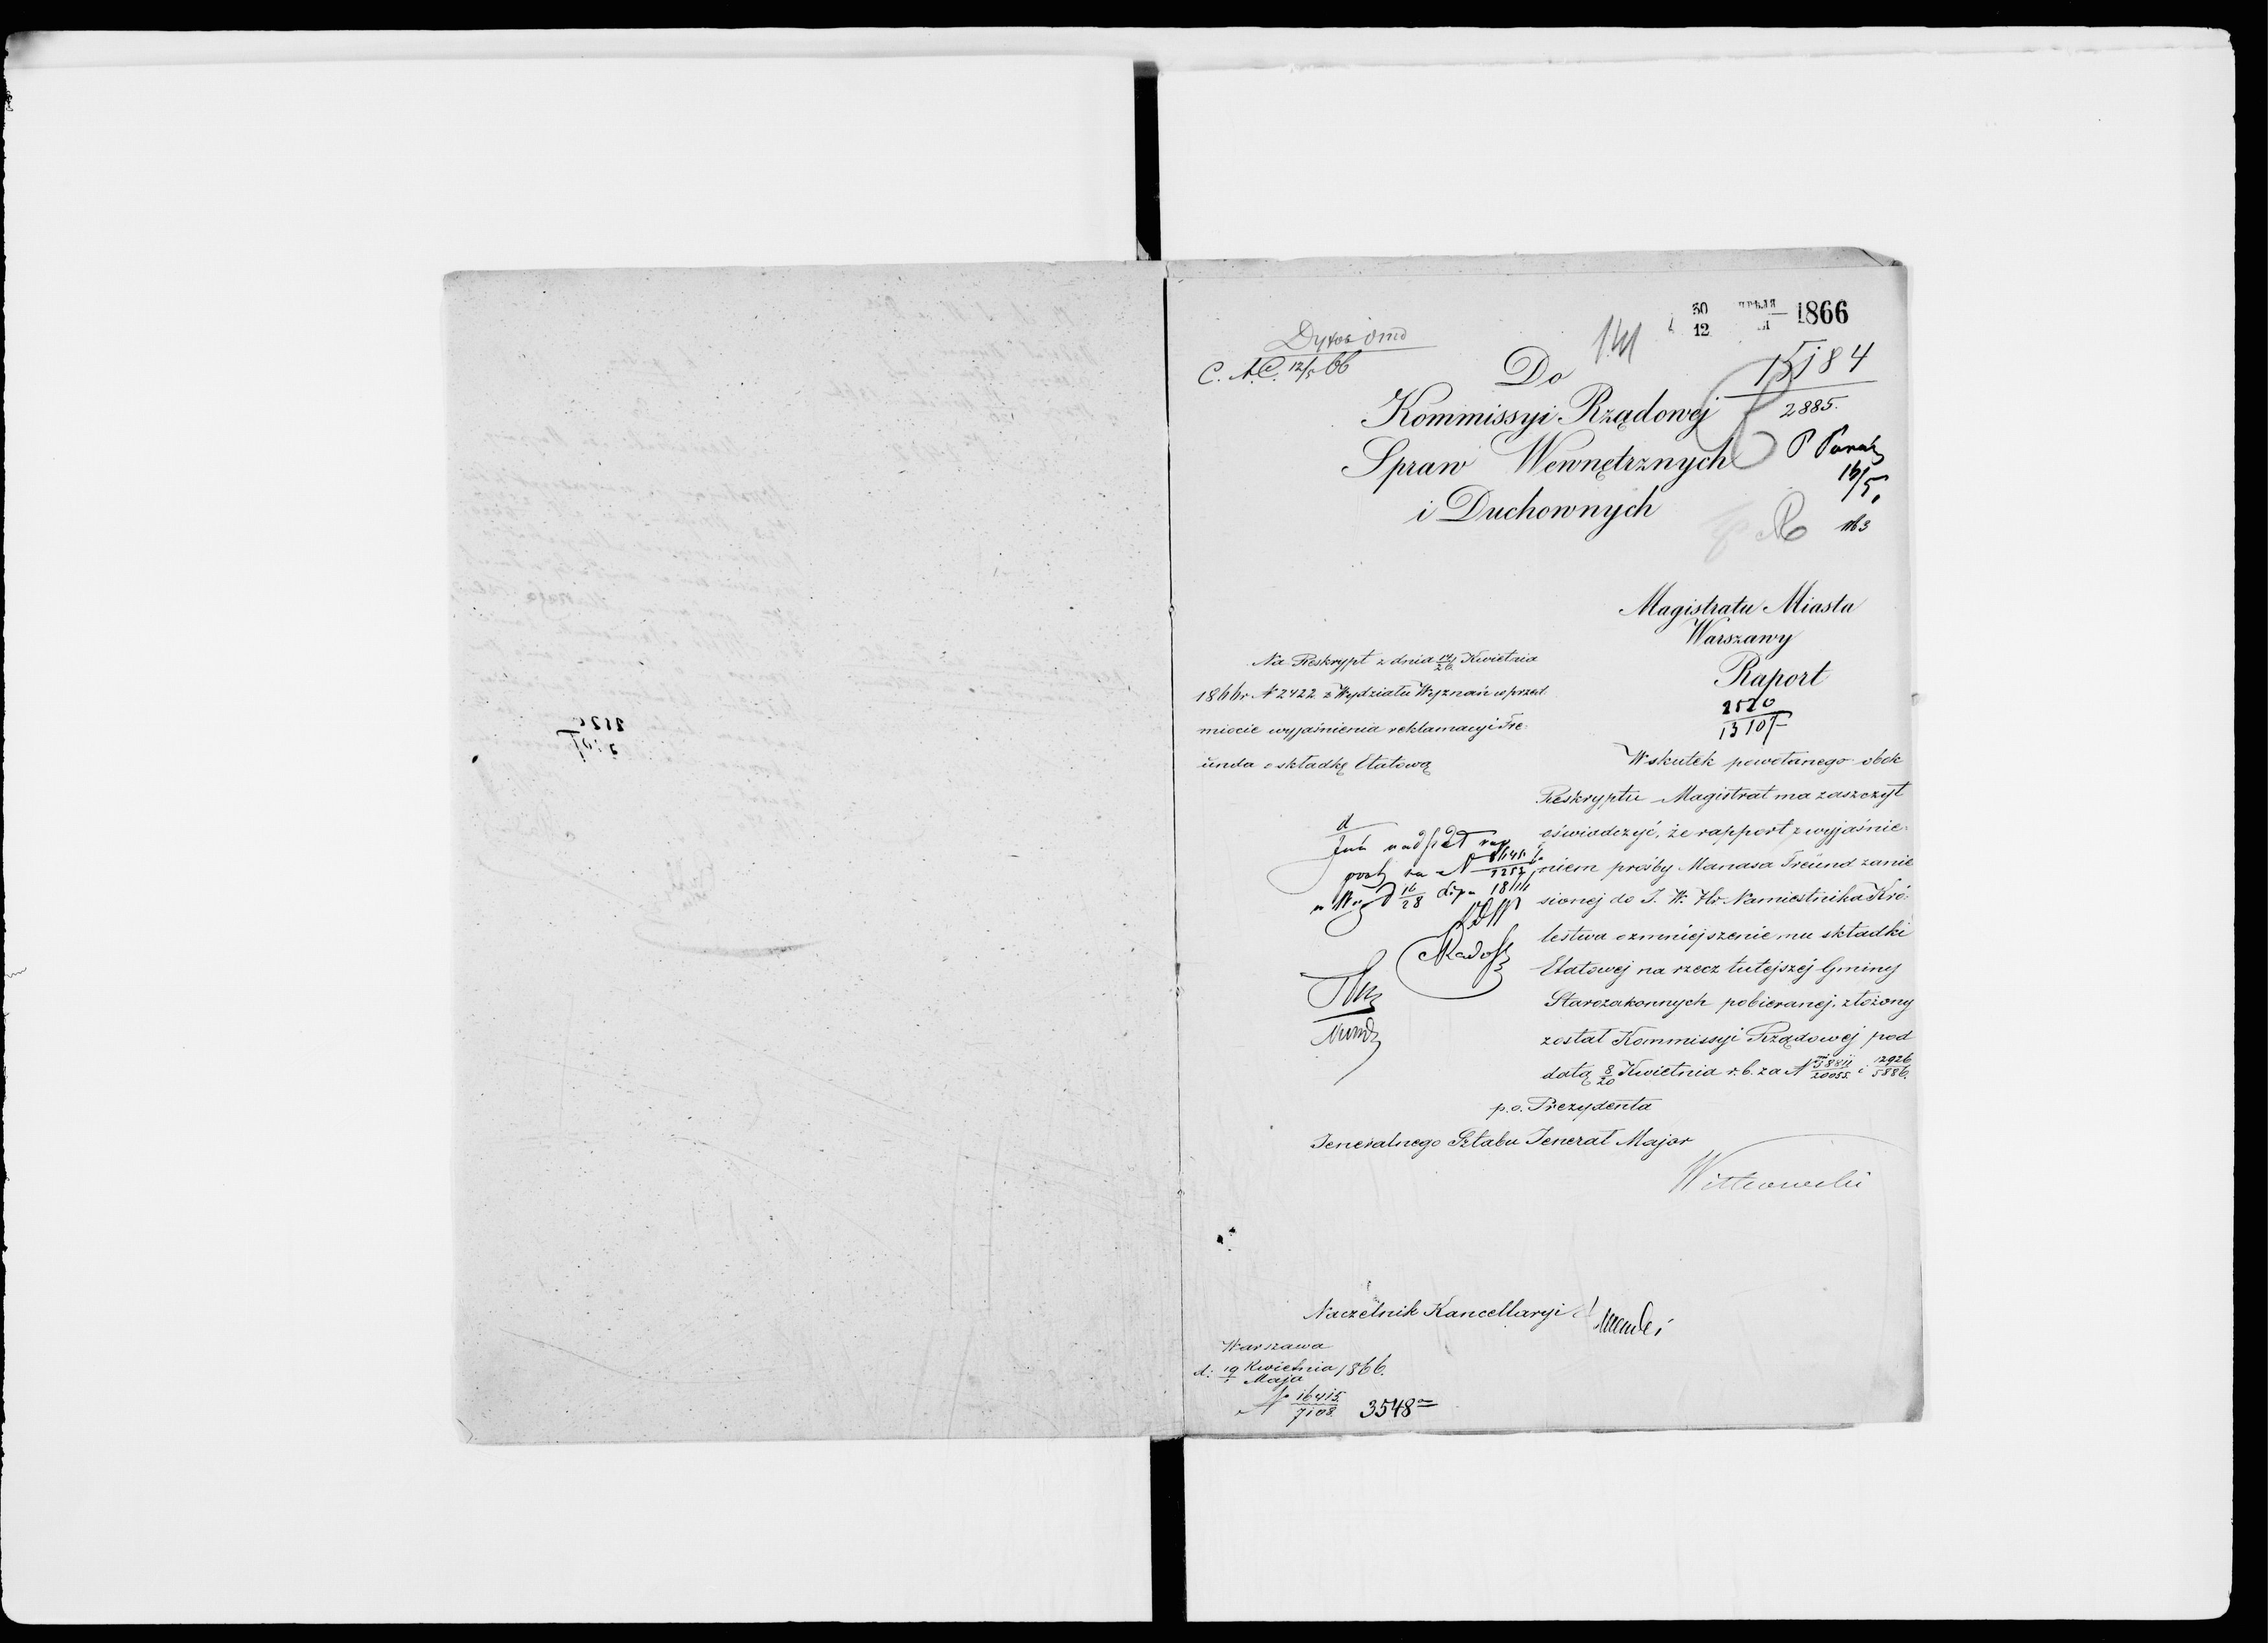 30 1866
12
141
C. N.C. 12/5 66
15184
2885.
Do
Kommissyi Rządowej
Spraw Wewnętrznych
i Duchownych
16/5
Magistratu Miasta
Warszawy
Raport
2520
13105
Na Reskrypt z dnia 14/26 Kwietnia
1866r. N 2422 z Wydziału Wyznań w przed
miocie wyjaśnienia reklamacyi Fre-
unda o składkę Etatową
W skutek powołanego obok
Reskryptu Magistrat ma zaszczyt
oświadczyć, że rapport z wyjaśnie-
niem prośby Manasa Freund zanie
sionej do J. W. Hr. Namiestnika Kró-
lestwa o zmniejszenie mu składki
Etatowej na rzecz tutejszej Gminy
Starozakonnych pobieranej, złożony
został Kommissyi Rządowej pod
datą 8/20 Kwietnia r.b. za N i 2926/5886.
Już nadszedł rap
port za N
16/28
p.o. Prezydenta
Jeneralnego Sztabu Jenerał Major
Witkowski
Naczelnik Kancellaryi
Warszawa
d: 19 Kwietnia/1 Maja 1866.
N 16415/7108 3548